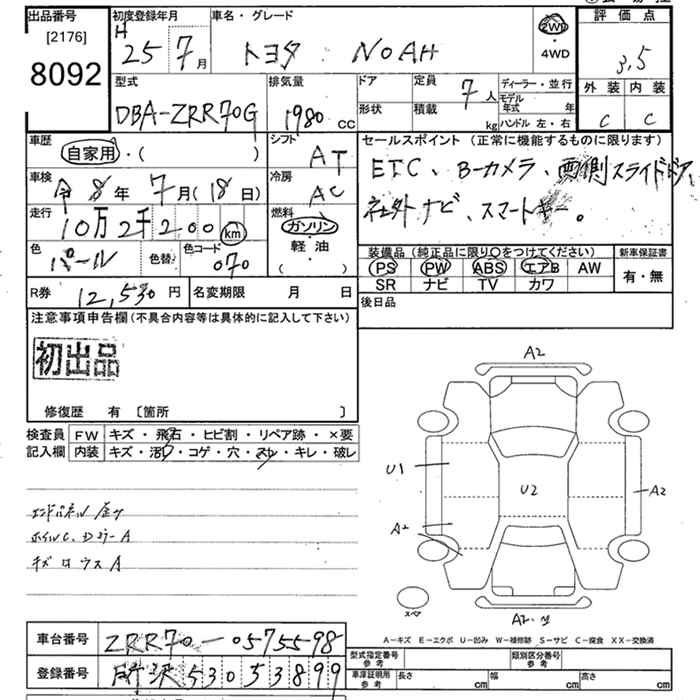 出品番号 初度登録年月 車名・グレード 2WD 評価点
[2176] H 25 7月 トヨタ NOAH ・ 4WD 3.5
8092 型式 排気量 ドア 定員 7人 ディーラー・並行 外装 内装
DBA-ZRR70G 1980 cc 形状 積載 kg モデル年式 年 C C
ハンドル 左・右
車歴 自家用・( ) シフト AT セールスポイント (正常に機能するものに限ります)
車検 令8年7月(18日) 冷房 AC ETC、Bーカメラ、両側スライドドア、
走行 10万2千200 km 燃料 ガソリン 社外ナビ、スマートキー。
色 パール 色替 色コード 070 軽・油 ( )
装備品 (純正品に限り○をつけてください) 新車保証書
PS PW ABS エアB AW 有・無
SR ナビ TV カワ
R券 12,530円 名変期限 月 日 後日品
注意事項申告欄(不具合内容等は具体的に記入して下さい)
初出品
修復歴 有 〔箇所 〕
検査員 FW キズ・飛石・ヒビ割・リペア跡・×要
記入欄 内装 キズ・汚・コゲ・穴・スレ・キレ・破レ
A2
U1 U2 A2
A2
ホイルC、DラーA
キズ ロウスA
スペア
A2
A-キズ E-エクボ U-凹み W-補修跡 S-サビ C-腐食 XX-交換済
車台番号 ZRR70-0575598
登録番号 所沢 530 5 3899
型式指定番号 参考 類別区分番号 参考
車庫証明用 参考 長さ cm 幅 cm 高さ cm